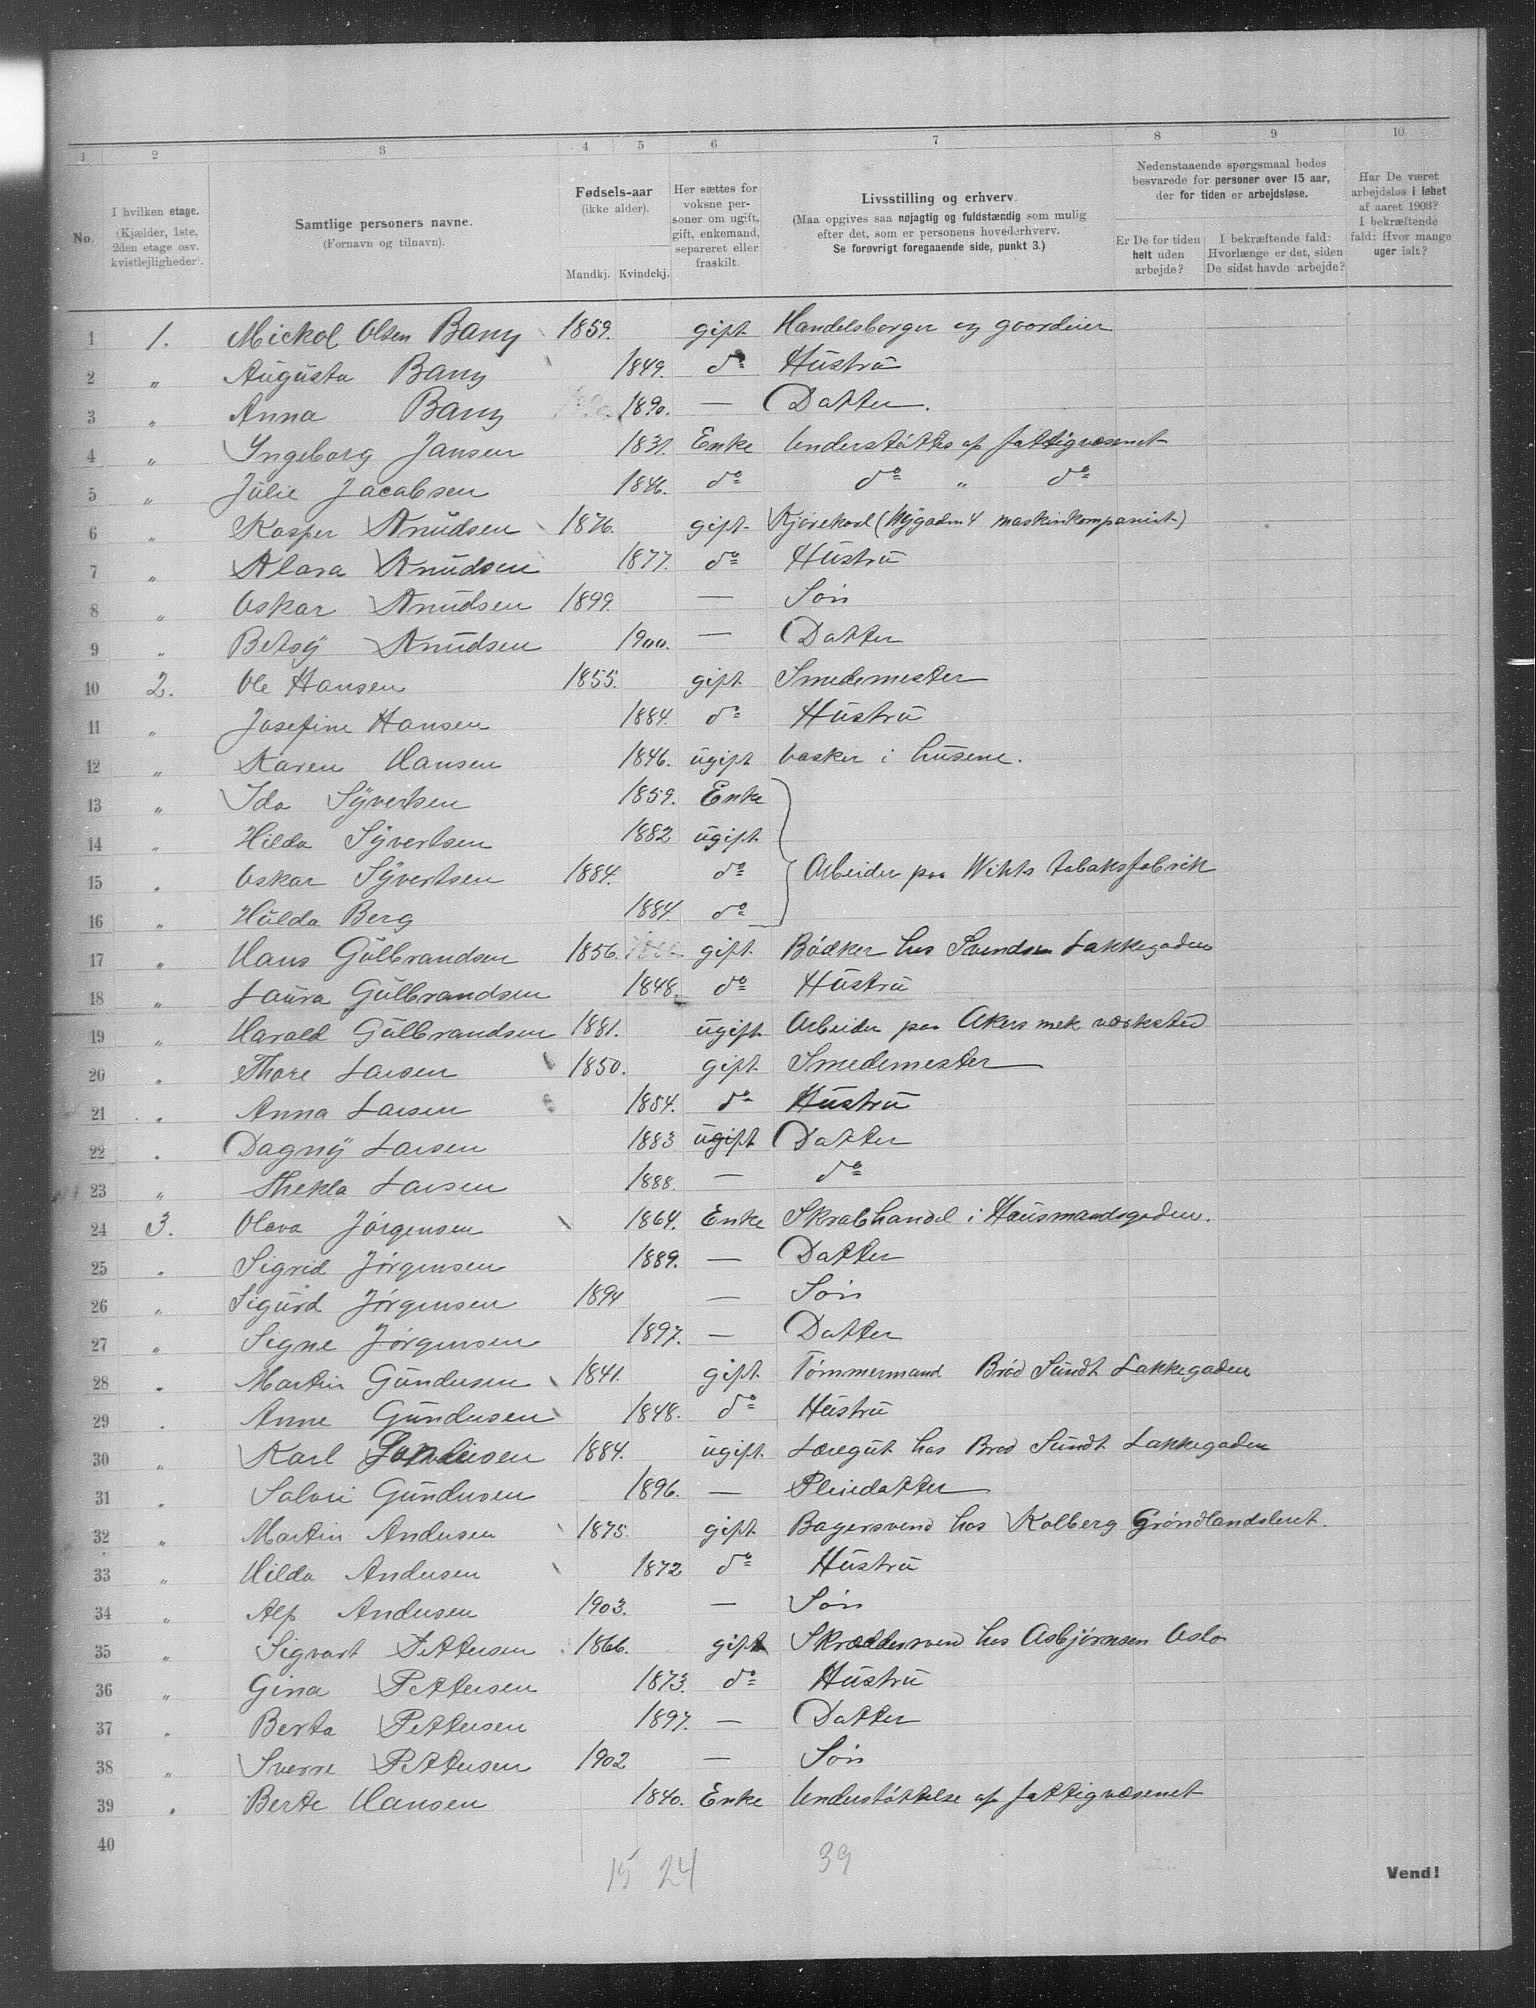 1 2 3 4 5 6 7 8 9 10
No.
I hvilken etage.
(Kjælder, 1ste,
2den etage osv.
kvistlejligheder).
Samtlige personers navne.
(Fornavn og tilnavn).
Fødsels-aar
(ikke alder).
Mandkj. Kvindekj.
Her sættes for
voksne per-
soner om ugift,
gift, enkemand,
separeret eller
fraskilt.
Livsstilling og erhverv.
(Maa opgives saa nøjagtig og fuldstændig som mulig
efter det, som er personens hovederhverv.
Se forøvrigt foregaaende side, punkt 3.)
Nedenstaaende spørgsmaal bedes
besvarede for personer over 15 aar,
der for tiden er arbejdsløse.
Er De for tiden
helt uden
arbejde?
I bekræftende fald:
Hvorlænge er det, siden
De sidst havde arbejde?
Har De været
arbejdsløs i løbet
af aaret 1903?
I bekræftende
fald: Hvor mange
uger ialt?
1 1. Mickol Olsen Bang 1859. gift Handelsborger og goordeier
2 " Augusta Bang 1849. do Hustru
3 " Anna Bang 1890. — Datter.
4 " Ingeborg Jansen 1831. Enke Understøttes af fattigvæsenet
5 " Julie Jacobsen 1846. do do " do
6 " Kasper Knudsen 1876. gift. Kjørekarl (Nygaden 4 maskinkompaniet)
7 " Klara Knudsen 1877. do Hustru
8 " Oskar Knudsen 1899. — Søn
9 " Betsy Knudsen 1900. — Datter
10 2. Ole Hansen 1855. gift Smedemester
11 " Josefine Hansen 1884. do Hustru
12 " Karen Hansen 1846. ugift vasker i husene.
13 " Ida Syvertsen 1859. Enke
14 " Hilda Syvertsen 1882 ugift
15 " Oskar Syvertsen 1884. do Arbeider paa Wihts tobaksfabrik
16 " Hulda Berg 1884. do
17 " Hans Gulbrandsen 1856. gift. Bødker hos Svendsen Lakkegaden
18 " Laura Gulbrandsen 1848. do Hustru
19 " Harald Gulbrandsen 1881. ugift Arbeider paa Akers mek værksted
20 " Thore Larsen 1850. gift. Smedemester
21 " Anna Larsen 1854. do Hustru
22 " Dagny Larsen 1883 ugift Datter
23 " Thekla Larsen 1888. — do
24 3. Olava Jørgensen 1864. Enke Skrabhandel i Hausmandsgaden.
25 " Sigrid Jørgensen 1889. — Datter
26 " Sigurd Jørgensen 1894 — Søn
27 " Signe Jørgensen 1897. — Datter
28 " Martin Gundersen 1841. gift. Tømmermand Brød Sundt Lakkegaden
29 " Anne Gundersen 1848. do Hustru
30 " Karl Gundersen 1884. ugift. Læregut hos Brød Sundt Lakkegaden
31 " Solvei Gundersen 1896. — Pleiedatter
32 " Martin Andersen 1875. gift Bagersvend hos Kolberg Grøndlandsleret.
33 " Hilda Andersen 1872 do Hustru
34 " Alf Andersen 1903. — Søn
35 " Sigvart Pettersen 1866. gift Skræddersvend hos Asbjørnsen Oslo
36 " Gina Pettersen 1873. do Hustru
37 " Berta Pettersen 1897. — Datter
38 " Sverre Pettersen 1902 — Søn
39 " Berte Hansen 1840. Enke Understøttelse af fattigvæsenet
40
15 24 39
Vend!